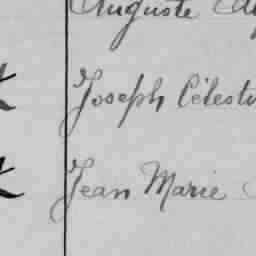 Auguste
Joseph Célestin
Jean Marie